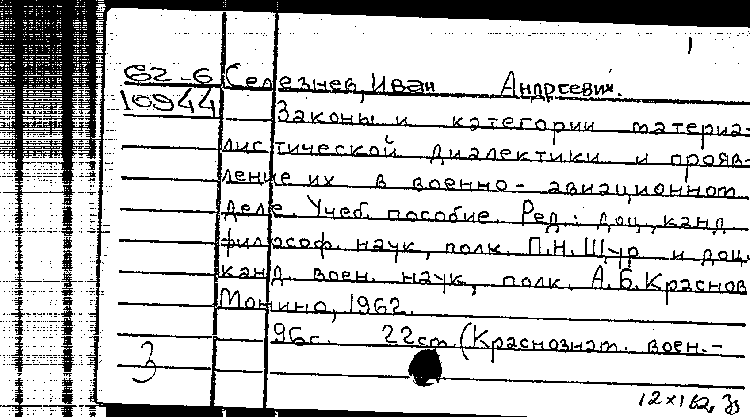 1
62-6 Селезнев, Иван Андреевич.
10944 Законы и категории материа-
листической диалектики и прояв-
ление их в военно-авиационном
деле. Учеб. пособие. Ред.: доц., канд
философ. наук, полк. П.Н. Щур и доц.
канд. воен. наук, полк. А.Б. Краснов
Монино, 1962.
96с. 22см (Краснознам. воен.-
3